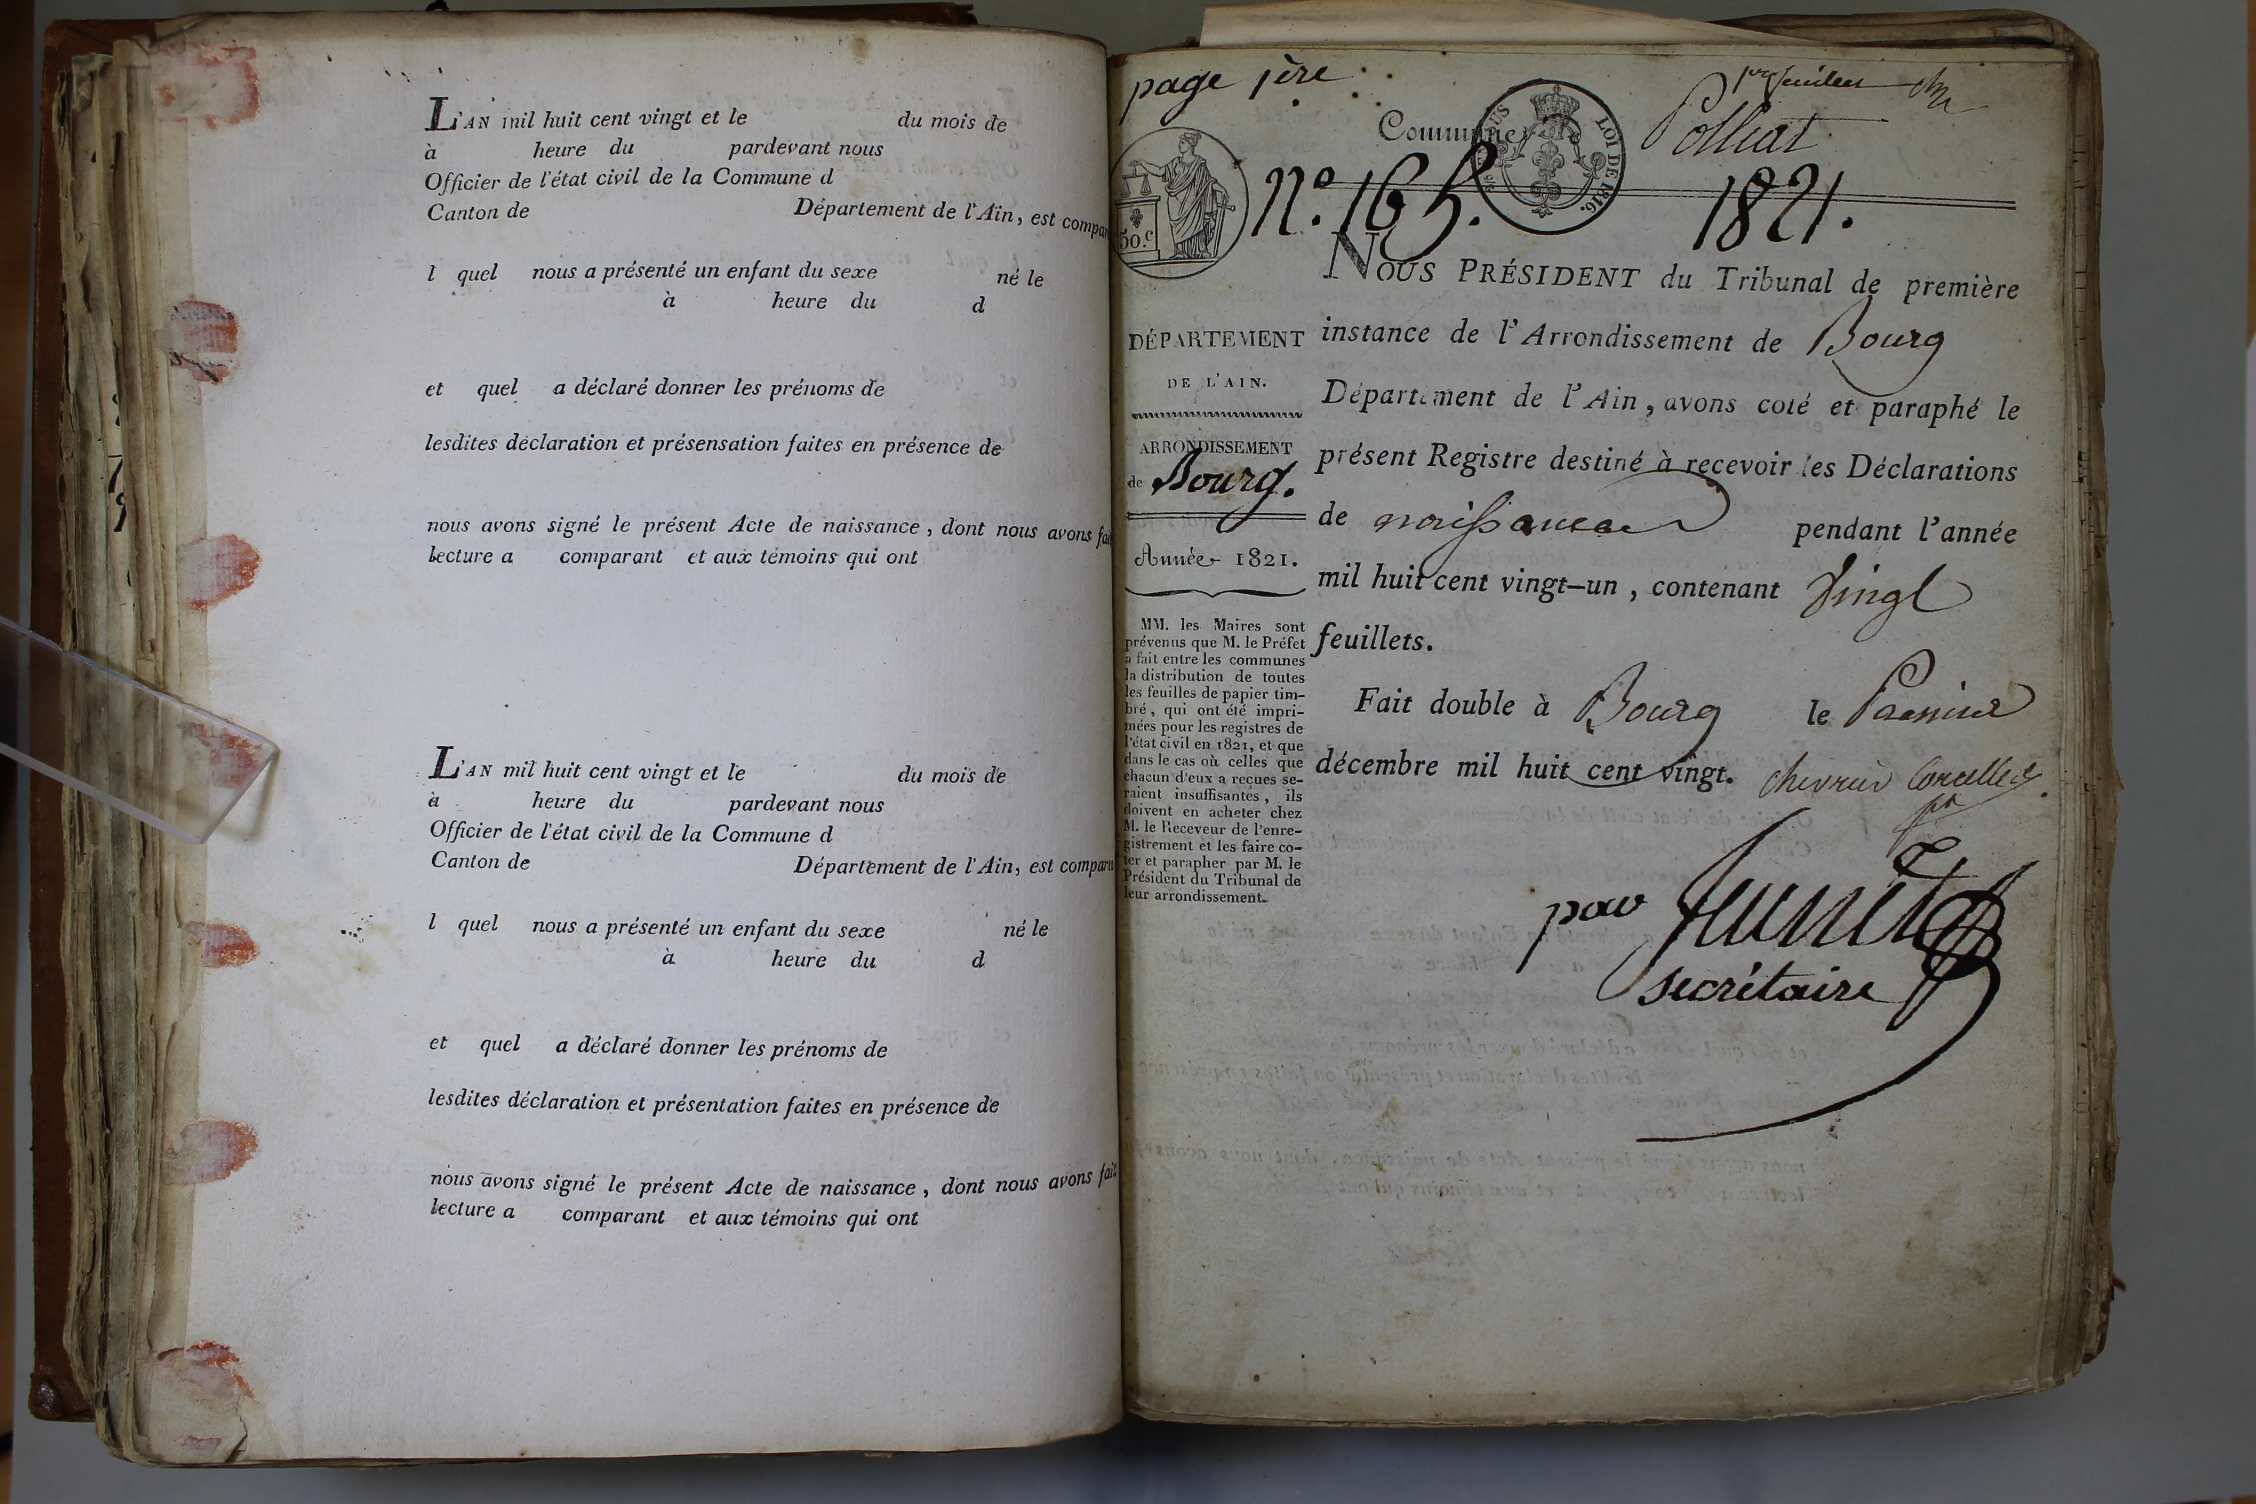 L'AN mil huit cent vingt et le du mois de
à heure du pardevant nous
Officier de l'état civil de la Commune d
Canton de Département de l'Ain, est compar
l quel nous a présenté un enfant du sexe né le
à heure du d
et quel a déclaré donner les prénoms de
lesdites déclaration et présensation faites en présence de
nous avons signé le présent Acte de naissance, dont nous avons fait
lecture a comparant et aux témoins qui ont
L'AN mil huit cent vingt et le du mois de
à heure du pardevant nous
Officier de l'état civil de la Commune d
Canton de Département de l'Ain, est comparu
l quel nous a présenté un enfant du sexe né le
à heure du d
et quel a déclaré donner les prénoms de
lesdites déclaration et présentation faites en présence de
nous avons signé le présent Acte de naissance, dont nous avons fait
lecture a comparant et aux témoins qui ont
page 1ère
Commune Polliat
LOI DE 1816.
50.c
N.º 165. 1821.
DÉPARTEMENT
DE L'AIN.
ARRONDISSEMENT
de Bourg.
Année 1821.
MM. les Maires sont
prévenus que M. le Préfet
a fait entre les communes
la distribution de toutes
les feuilles de papier tim-
bré, qui ont été impri-
mées pour les registres de
l'état civil en 1821, et que
dans le cas où celles que
chacun d'eux a reçues se-
raient insuffisantes, ils
doivent en acheter chez
M. le Receveur de l'enre-
gistrement et les faire co-
ter et parapher par M. le
Président du Tribunal de
leur arrondissement.
NOUS PRÉSIDENT du Tribunal de première
instance de l'Arrondissement de Bourg
Département de l'Ain, avons coté et paraphé le
présent Registre destiné à recevoir les Déclarations
de naissances pendant l'année
mil huit cent vingt-un, contenant Vingt
feuillets.
Fait double à Bourg le
décembre mil huit cent vingt. chevrier Corcelles
par
secrétaire